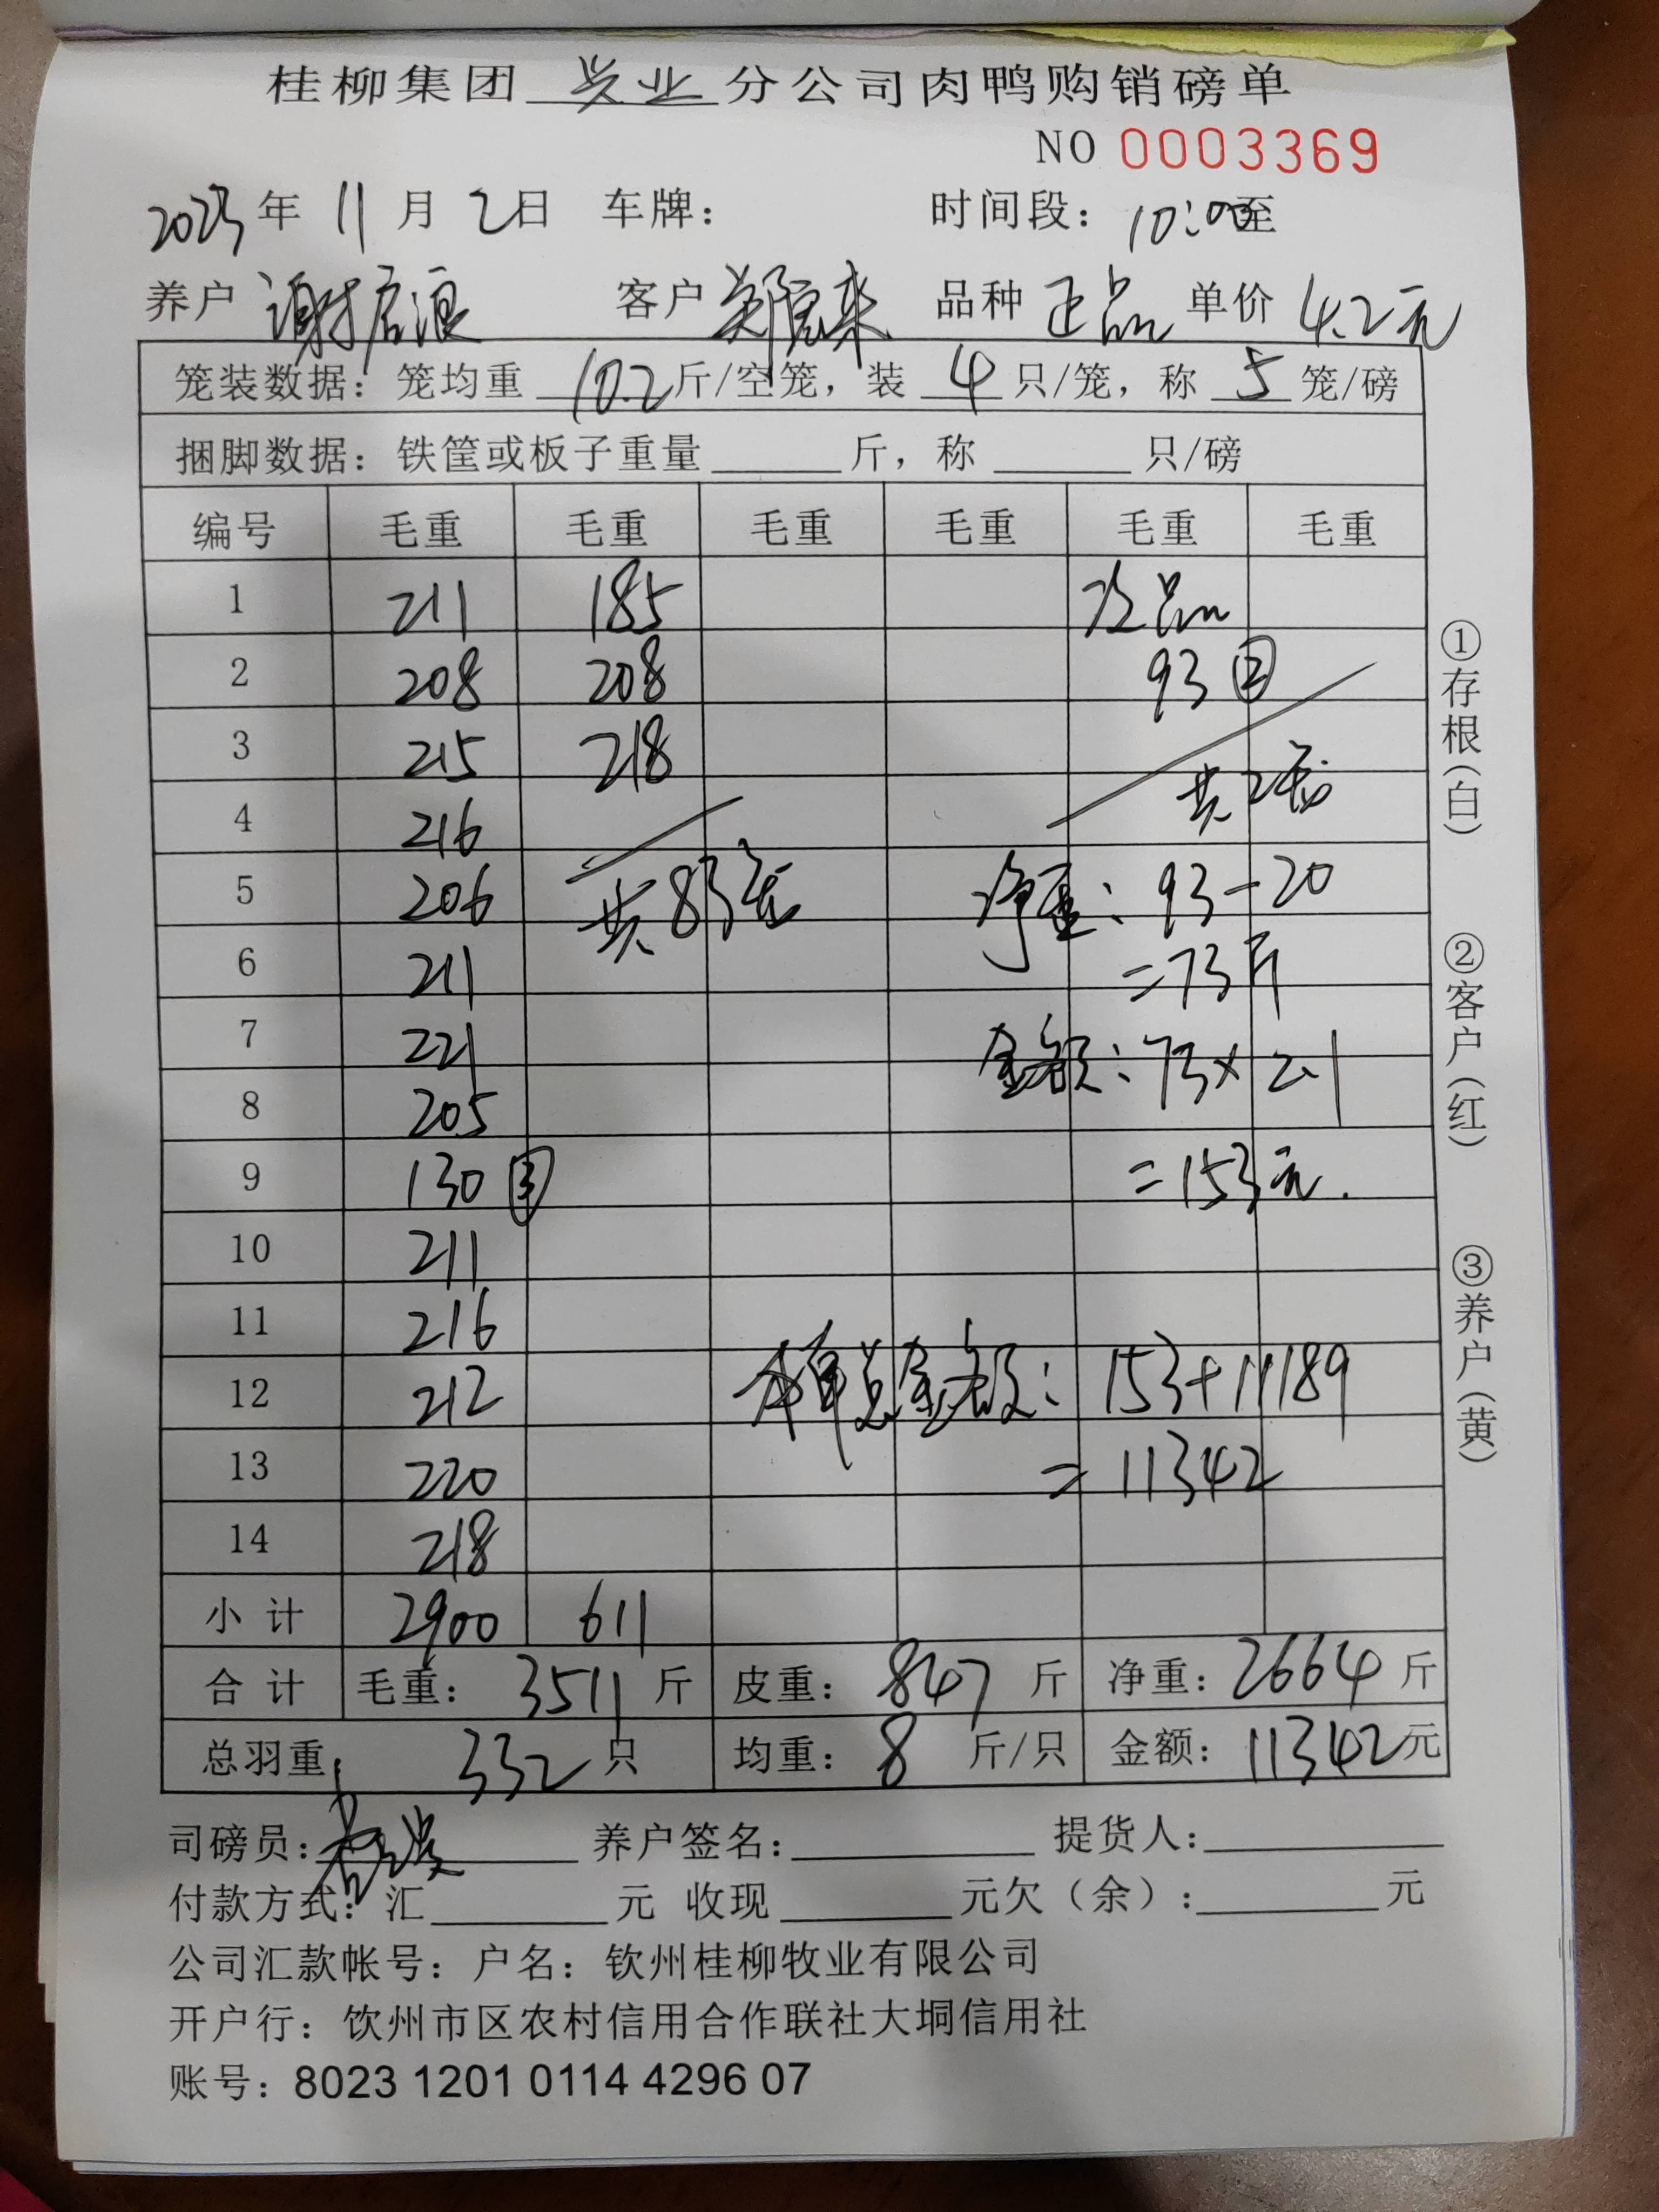 桂柳集团 兴业 分公司肉鸭购销磅单
NO 0003369
2023年 11月 2日 车牌： 时间段：10:00至
养户 谢启浪 客户 郑 来 品种 正品 单价 4.2元
笼装数据：笼均重 10.2 斤/空笼，装 4 只/笼，称 5 笼/磅
捆脚数据：铁筐或板子重量 斤，称 只/磅
编号 毛重 毛重 毛重 毛重 毛重 毛重
1 211 185 次品
2 208 208 93②
3 215 218
4 216 共2笼
5 206 共83笼 净重：93-20
6 211 =73斤
7 221 金额：73×2.1
8 205
9 130③ =153元.
10 211
11 216
12 212 本单总金额：153+11189
13 220 =11342
14 218
小计 2900 611
合计 毛重：3511斤 皮重：847斤 净重：2664斤
总羽重：332只 均重：8斤/只 金额：11342元
司磅员： 养户签名： 提货人：
付款方式：汇 元 收现 元欠（余）： 元
公司汇款帐号：户名：钦州桂柳牧业有限公司
开户行：饮州市区农村信用合作联社大垌信用社
账号：8023 1201 0114 4296 07
①存根（白）
②客户（红）
③养户（黄）